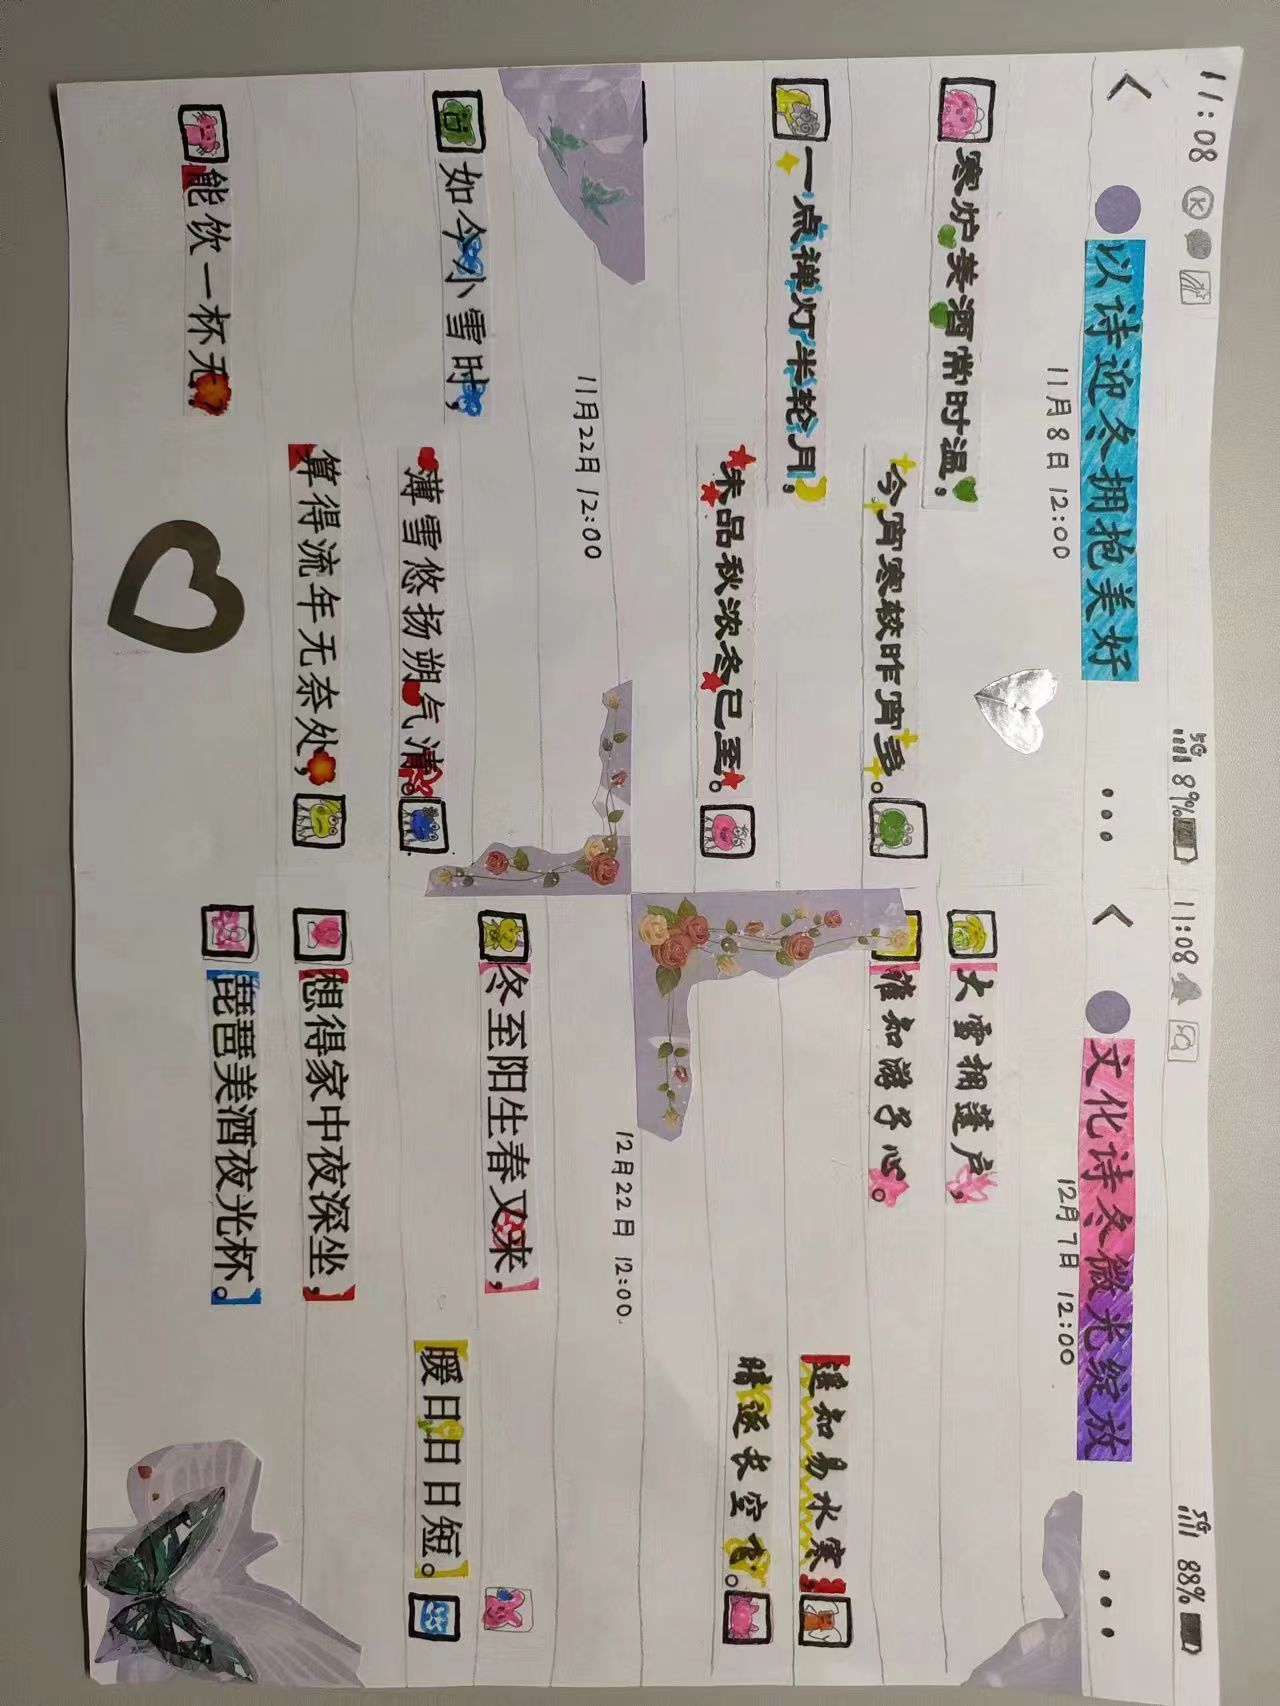 11:08 K 5G 89%
< 以诗迎冬拥抱美好 ...
11月8日 12:00
寒炉美酒常时温，
今宵寒较昨宵多。
一点禅灯半轮月，
未品秋浓冬已至。
11月22日 12:00
如今小雪时，
薄雪悠扬朔气清。
算得流年无奈处，
能饮一杯无？
11:08 5G 88%
< 文化诗冬微光绽放 ...
12月7日 12:00
大雪拥蓬户，
谁知游子心。
遥知易水寒，
暗逐长空。
12月22日 12:00
冬至阳生春又来，
暖日日日短。
想得家中夜深坐，
琵琶美酒夜光杯。